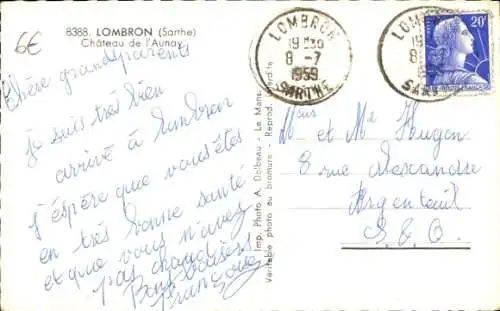 6€
8388. LOMBRON (Sarthe)
Château de l'Aunay
Chère grandparents
je suis très bien
arrivé à Lombron
j'éspère que vous êtes
en très bonne santé
et que vous n'avez
pas chaud
Bons baisers
Françoise
Imp. Photo A. Dolbeau - Le Mans.
Véritable photo au bromure - Réprod. interdite
LOMBRON
19H30
8 -7
1959
SARTHE
LOMBRON
19
8
SAR
20F
Mons
M et Me Hugon
8 rue Alexandre
Argenteuil
S. & O.